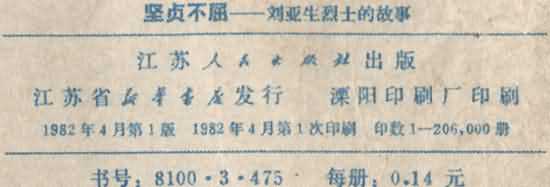 坚贞不屈——刘亚生烈士的故事
江苏人民出版社出版
江苏省新华书店发行 溧阳印刷厂印刷
1982年4月第1版 1982年4月第1次印刷 印数1—206,000册
书号：8100·3·475 每册：0.14元